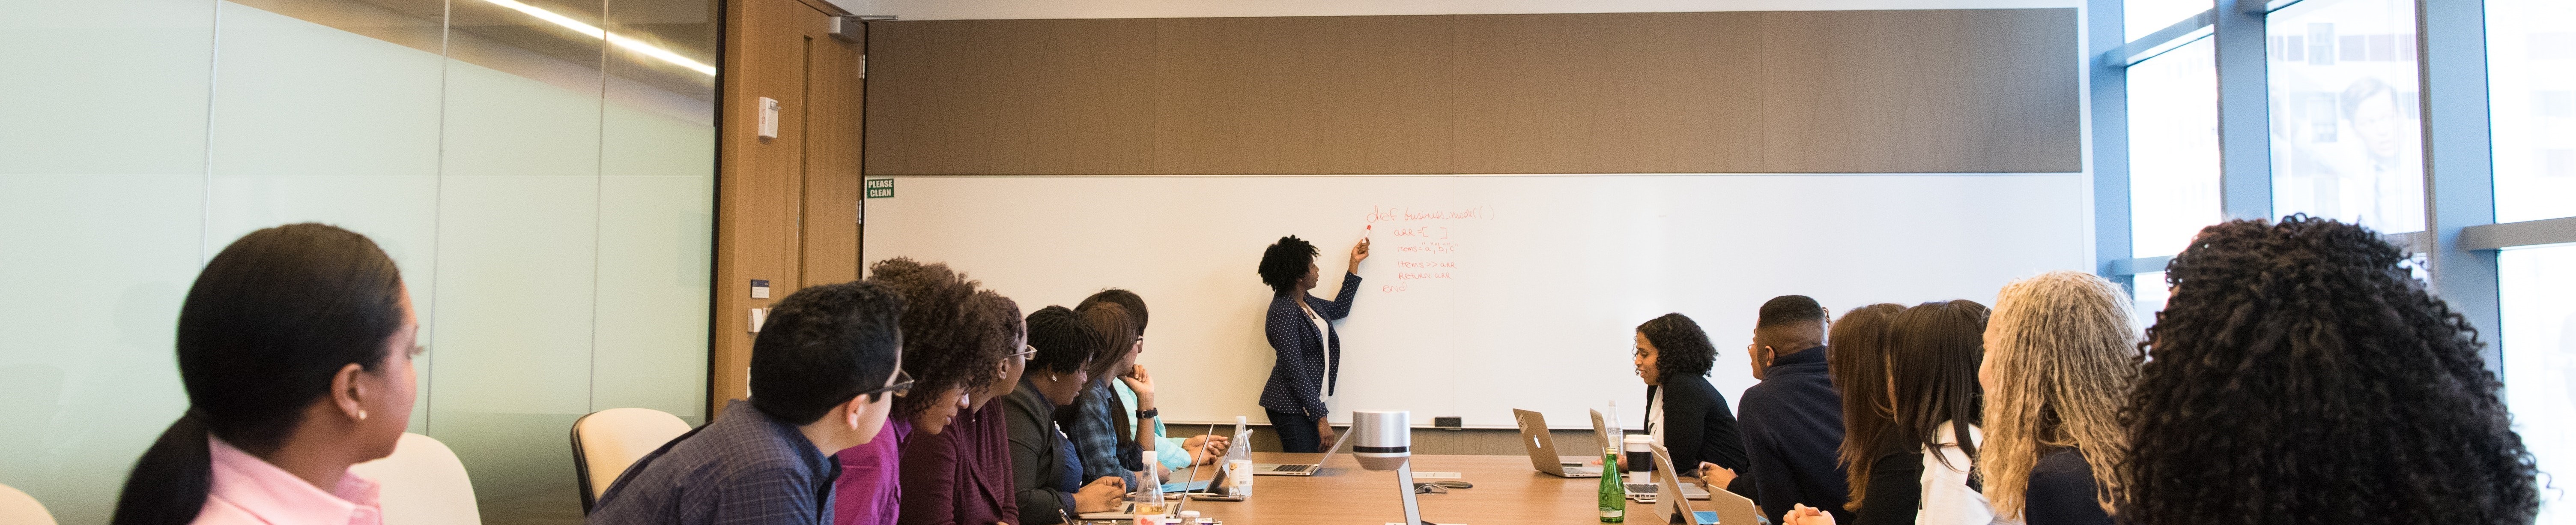 PLEASE
CLEAN
def business_madri()
arr = [ ]
items = "a", "b", "c"
items >> arr
return arr
end